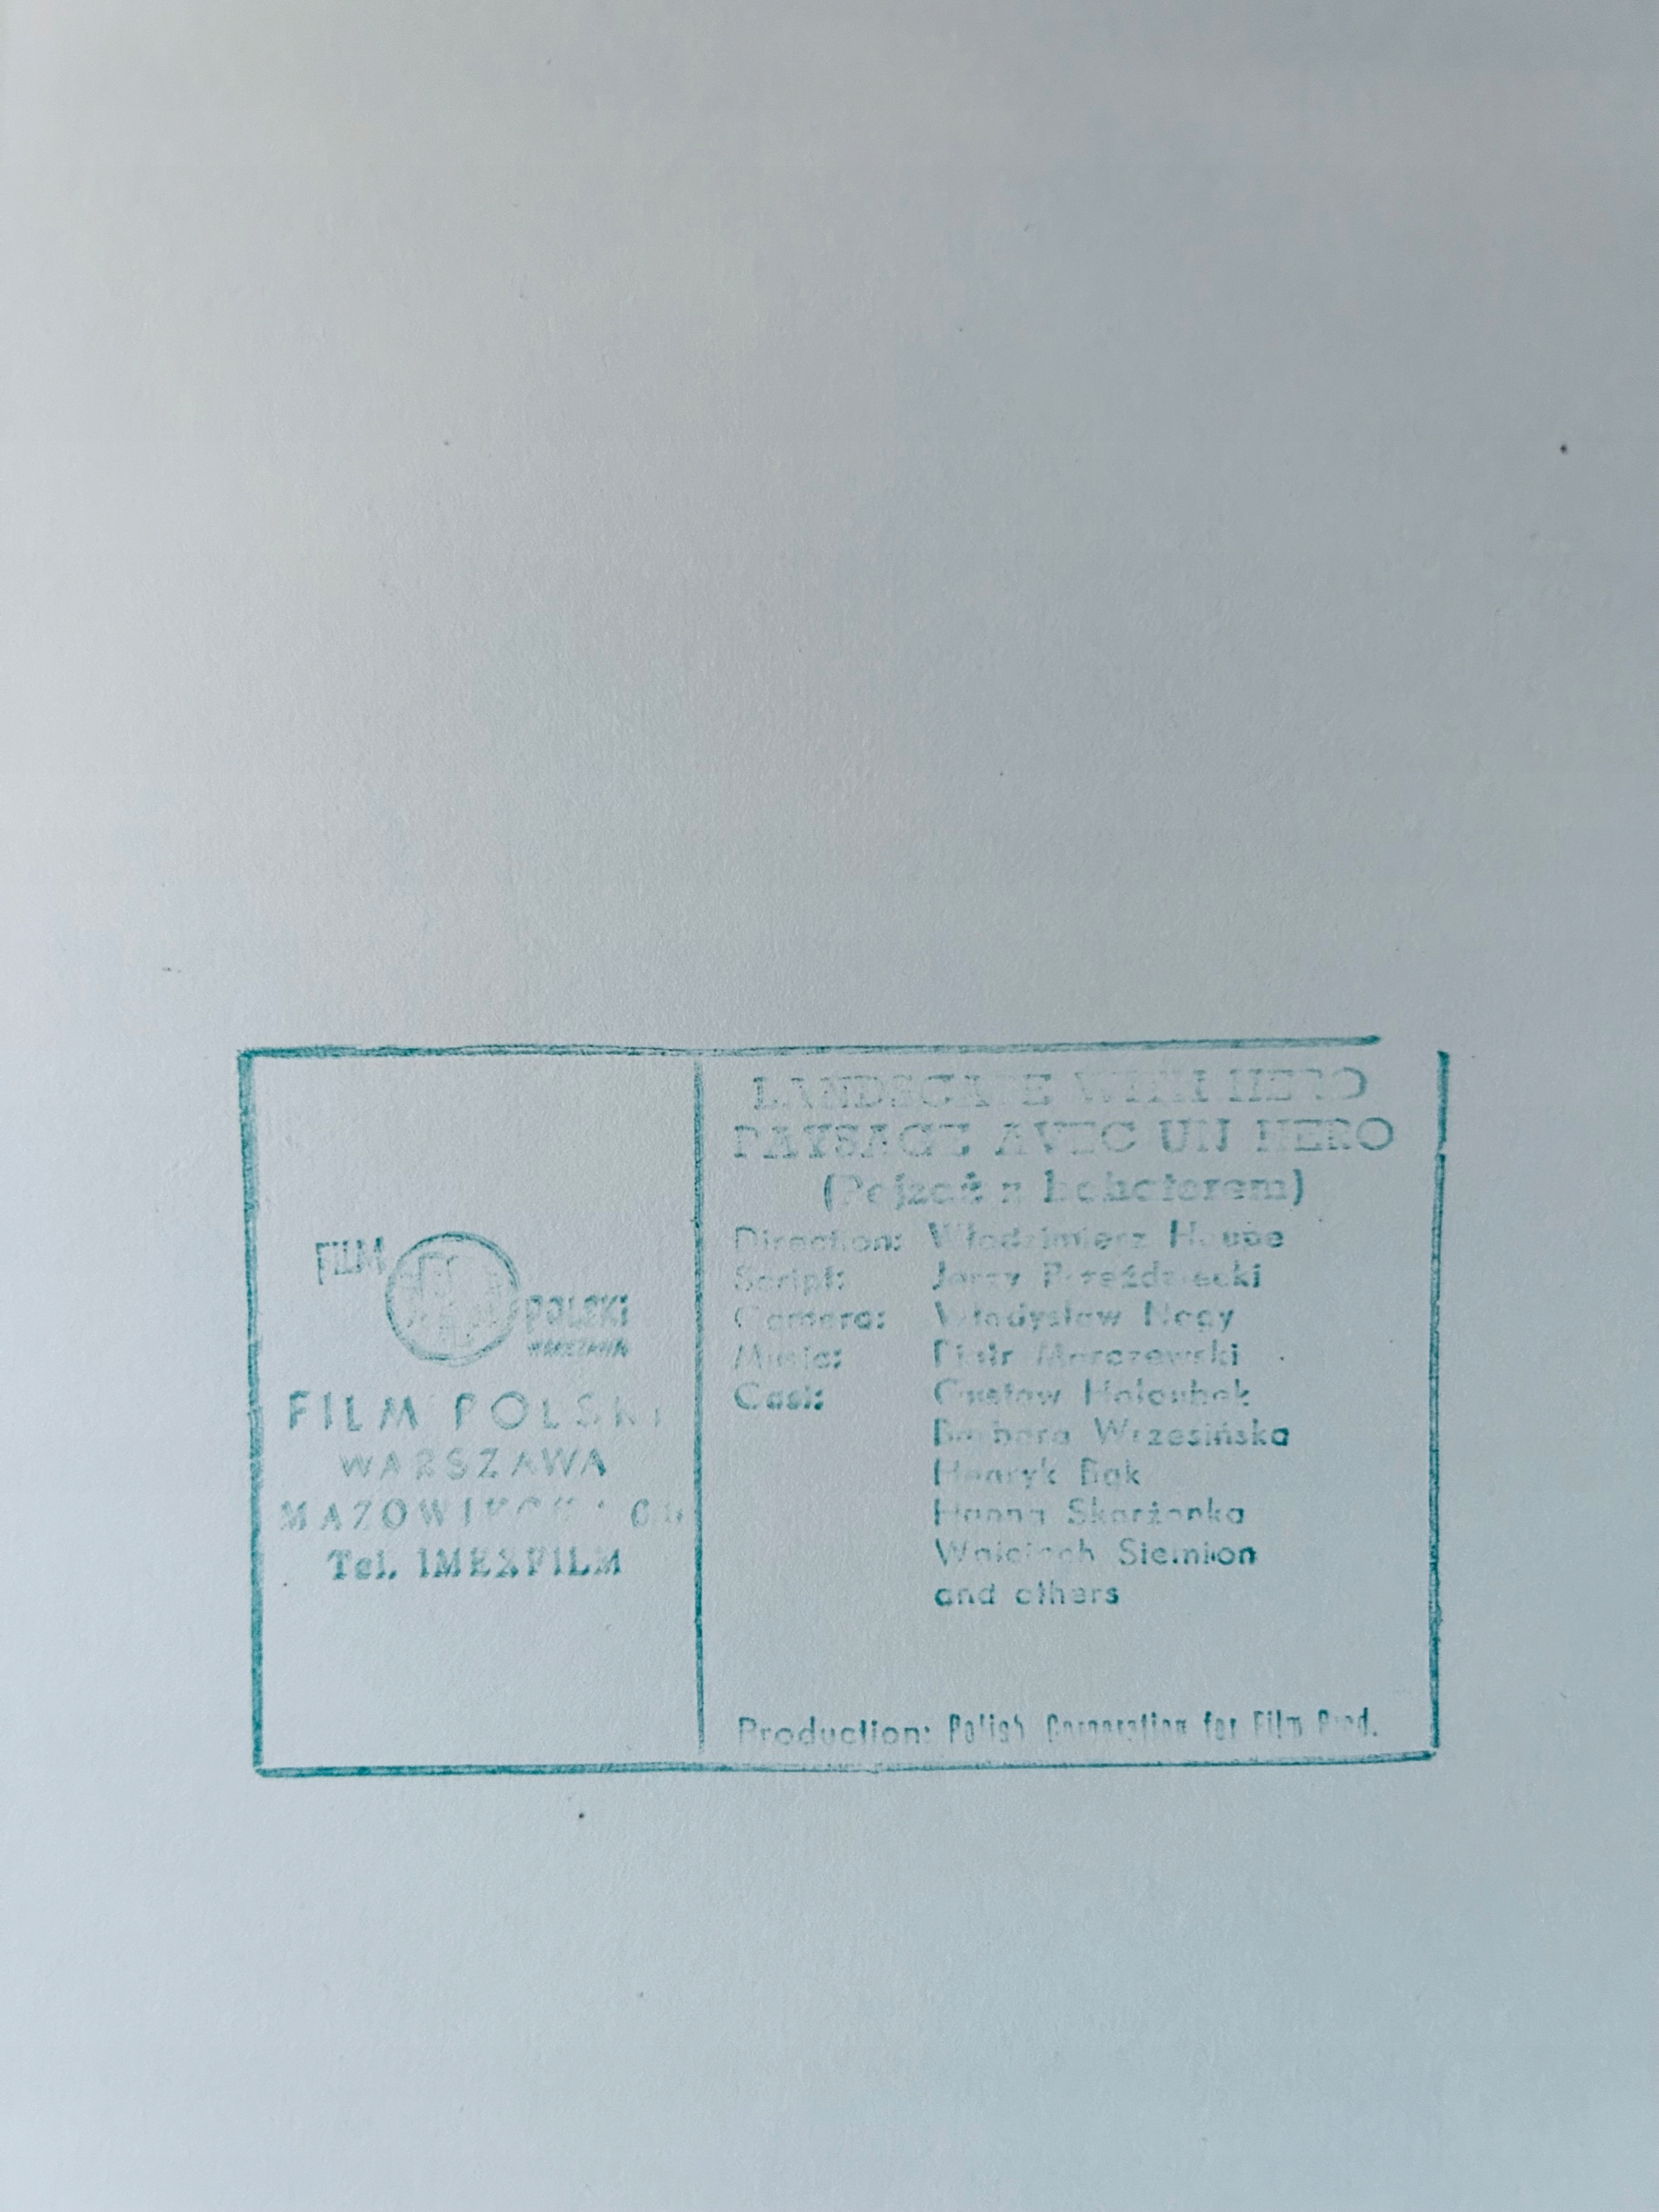 FILM
POLSKI
WARSZAWA
FILM POLSKI
WARSZAWA
Tel. IMEXFILM
LANDSCAPE WITH HERO
PAYSAGE AVEC UN HERO
(Pejzaż z bohaterem)
Direction: Włodzimierz Haupe
Script: Jerzy Przeździecki
Camera: Władysław Nagy
Music: Piotr Marczewski
Cast: Gustaw Holoubek
Barbara Wrzesińska
Henryk Bąk
Hanna Skarżanka
Wojciech Siemion
and others
Production: Polish Corporation for Film Prod.